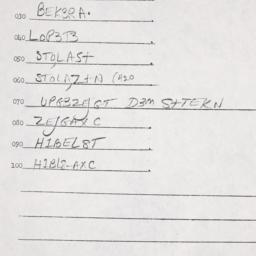 030 BEKSRA.
040 LOP3T3
050 STOLAST
060 STOLAZTN (H20
070 UPG3ZEJGT D3M STTEKN
080 ZEJGAXC
090 HIBEL8T
100 HIBL2-AXC